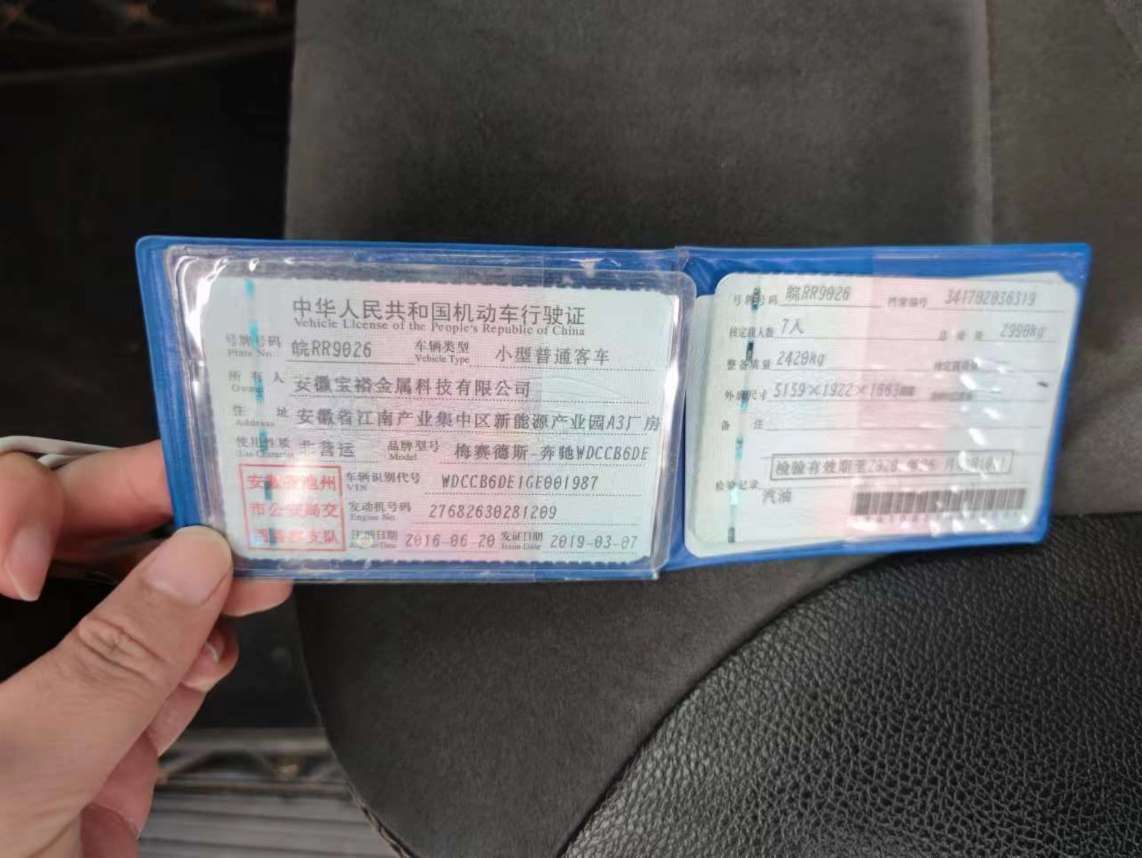 中华人民共和国机动车行驶证
Vehicle License of the People's Republic of China
号牌号码 皖RR9026 车辆类型 小型普通客车
Plate No. Vehicle Type
所有人 安徽宝裕金属科技有限公司
Owner
住址 安徽省江南产业集中区新能源产业园A3厂房
Address
使用性质 非营运 品牌型号 梅赛德斯-奔驰WDCCB6DE
Use Character Model
车辆识别代号 WDCCB6DE1GE001987
VIN
发动机号码 27682630281209
Engine No.
注册日期 2016-06-20 发证日期 2019-03-07
Register Date Issue Date
安徽省池州
市公安局交
支队
号牌号码 皖RR9026 档案编号
核定载人数 7人 总质量 2990kg
整备质量 2420kg
外廓尺寸 5159×1922×
备注
检验有效期至
检验记录
汽油